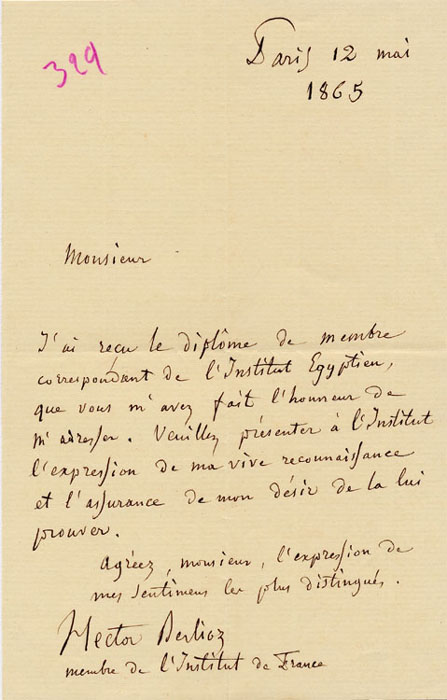 399
Paris 12 mai
1865
Monsieur
J'ai reçu le diplôme de membre
correspondant de l'Institut Egyptien,
que vous m'avez fait l'honneur de
m'adresser. Veuillez présenter à l'Institut
l'expression de ma vive reconnaissance
et l'assurance de mon désir de la lui
prouver.
Agréez, monsieur, l'expression de
mes sentimens les plus distingués.
Hector Berlioz
membre de l'Institut de France